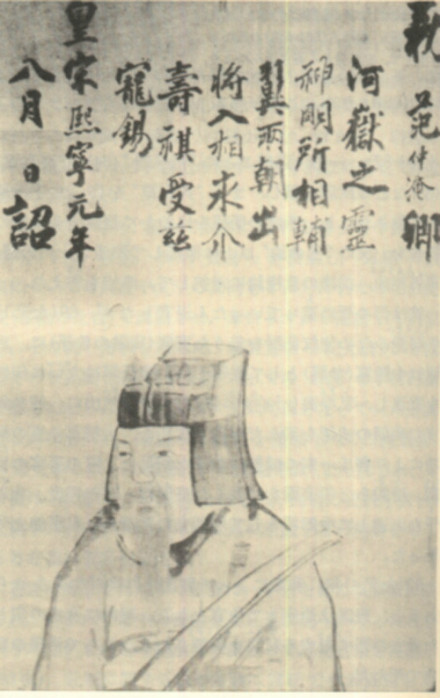 敕范仲淹卿
河嶽之靈
神明所相輔
翼兩朝出
將入相求介
壽祺受玆
寵錫
皇宋熙寧元年
八月日詔